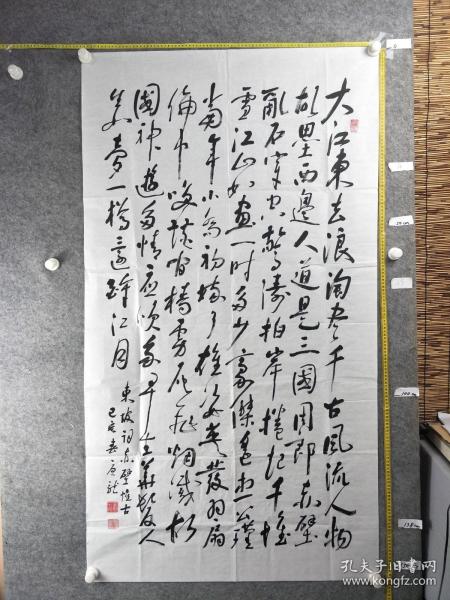 大江東去浪淘尽千古風流人物
故壘西邊人道是三國周郎赤壁
亂石穿空驚濤拍岸捲起千堆
雪江山如畫一時多少豪傑遙想公瑾
當年小喬初嫁了雄姿英發羽扇
綸巾談笑間檣虜灰飛煙滅故
國神遊多情應笑我早生華髮人
夢一樽還酹江月
東坡詞赤壁懷古
己亥春
孔夫子旧书网
kongfz.com